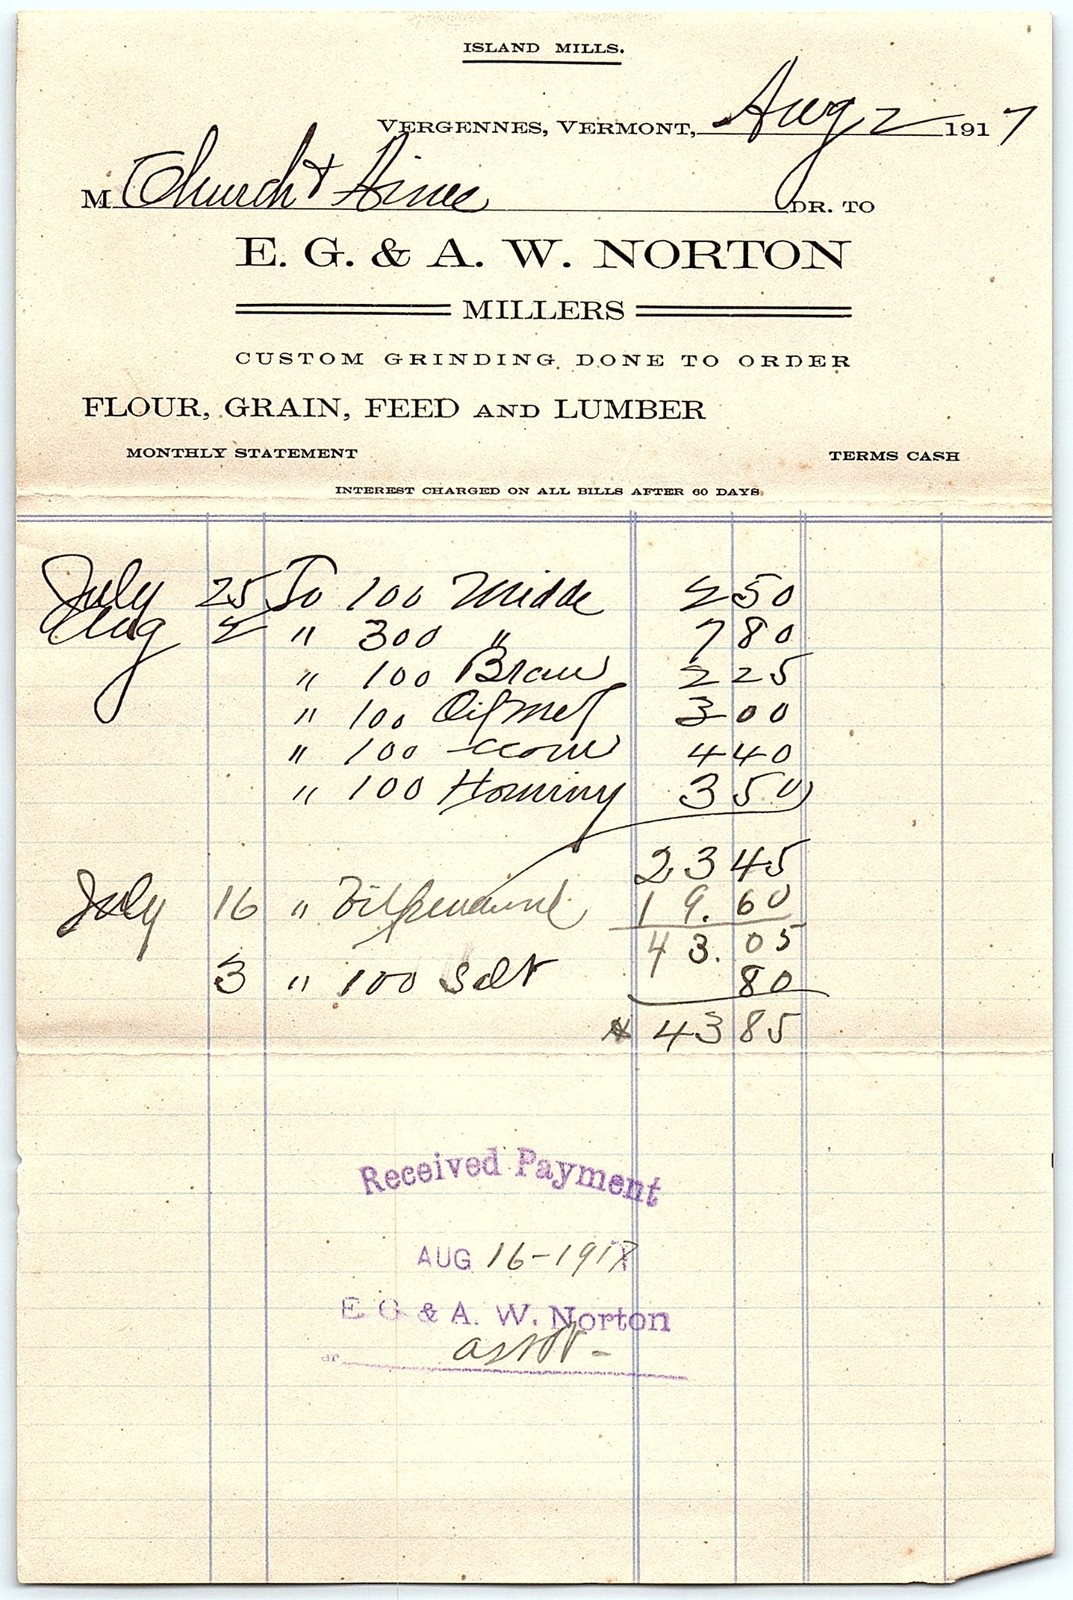 ISLAND MILLS.
VERGENNES, VERMONT, Aug 2 1917
M Church & Hines DR. TO
E. G. & A. W. NORTON
MILLERS
CUSTOM GRINDING DONE TO ORDER
FLOUR, GRAIN, FEED AND LUMBER
MONTHLY STATEMENT TERMS CASH
INTEREST CHARGED ON ALL BILLS AFTER 60 DAYS.
July 25 To 100 Midds 2 50
Aug 2 " 300 " 7 80
" 100 Bran 2 25
" 100 Oil Mel 3 00
" 100 Corn 4 40
" 100 Hominy 3 50
23 45
July 16 " Bill 19.60
43.05
3 " 100 Salt 80
43 85
Received Payment
AUG 16-1917
E G & A. W. Norton
or